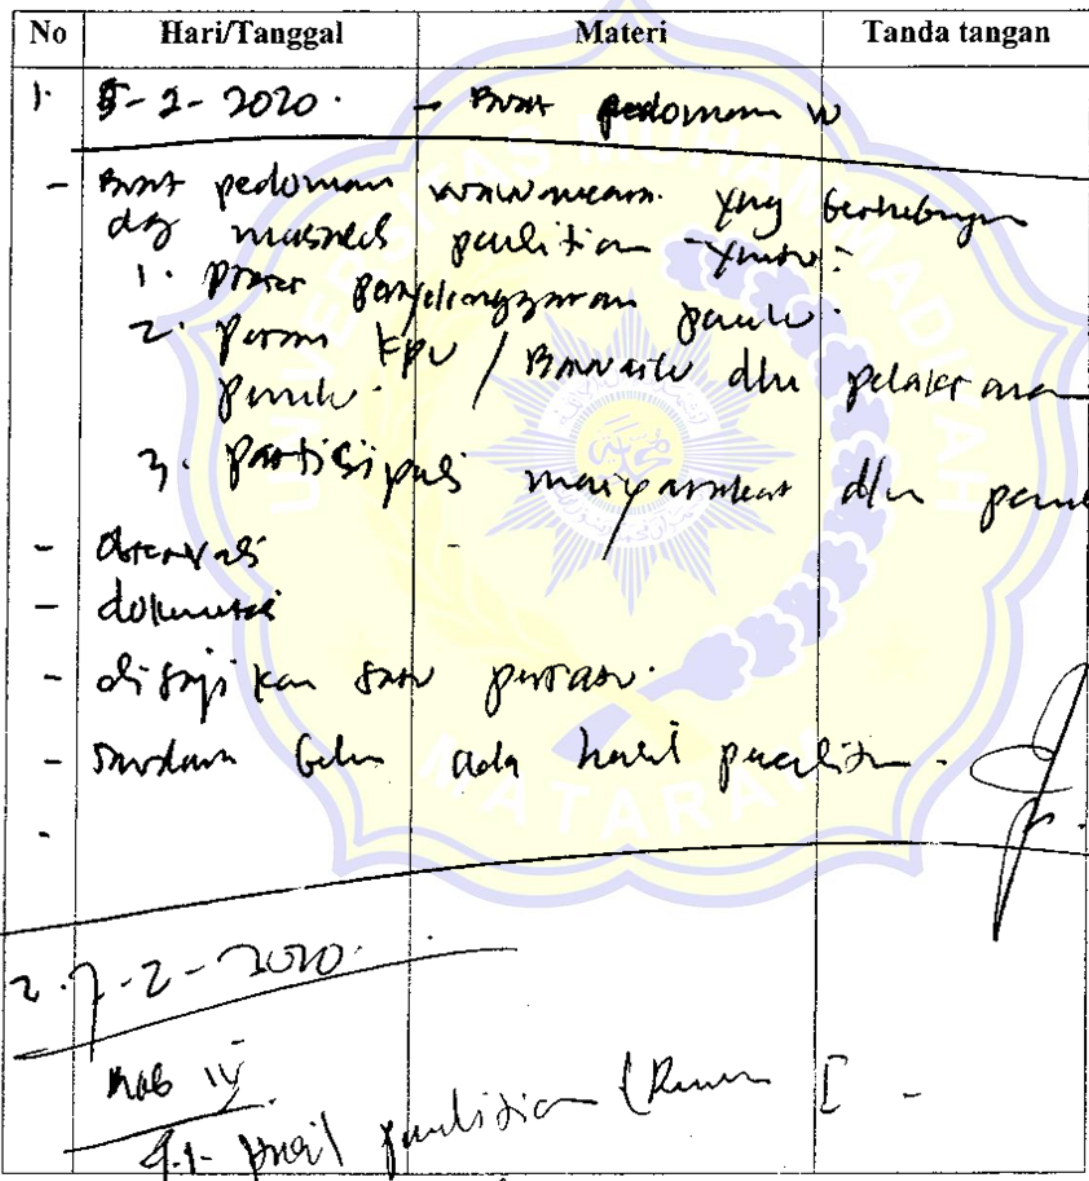 No Hari/Tanggal Materi Tanda tangan
1. 5-2-2020. - Buat pedoman w
- Buat pedoman wawancara yang berhubungan
dg masalah penelitian yaitu:
1. proses penyelenggaraan pemilu.
2. peran KPU / Bawaslu dlm pelaksanaan
pemilu.
3. partisipasi masyarakat dlm pemilu
- observasi
- dokumentasi
- disajikan satu persatu.
- saudara belum ada hasil penelitian.
-
2. 7-2-2020.
Bab IV
4.1. hasil penelitian (Rumusan I -
UNIVERSITAS MUHAMMADIYAH
MATARAM